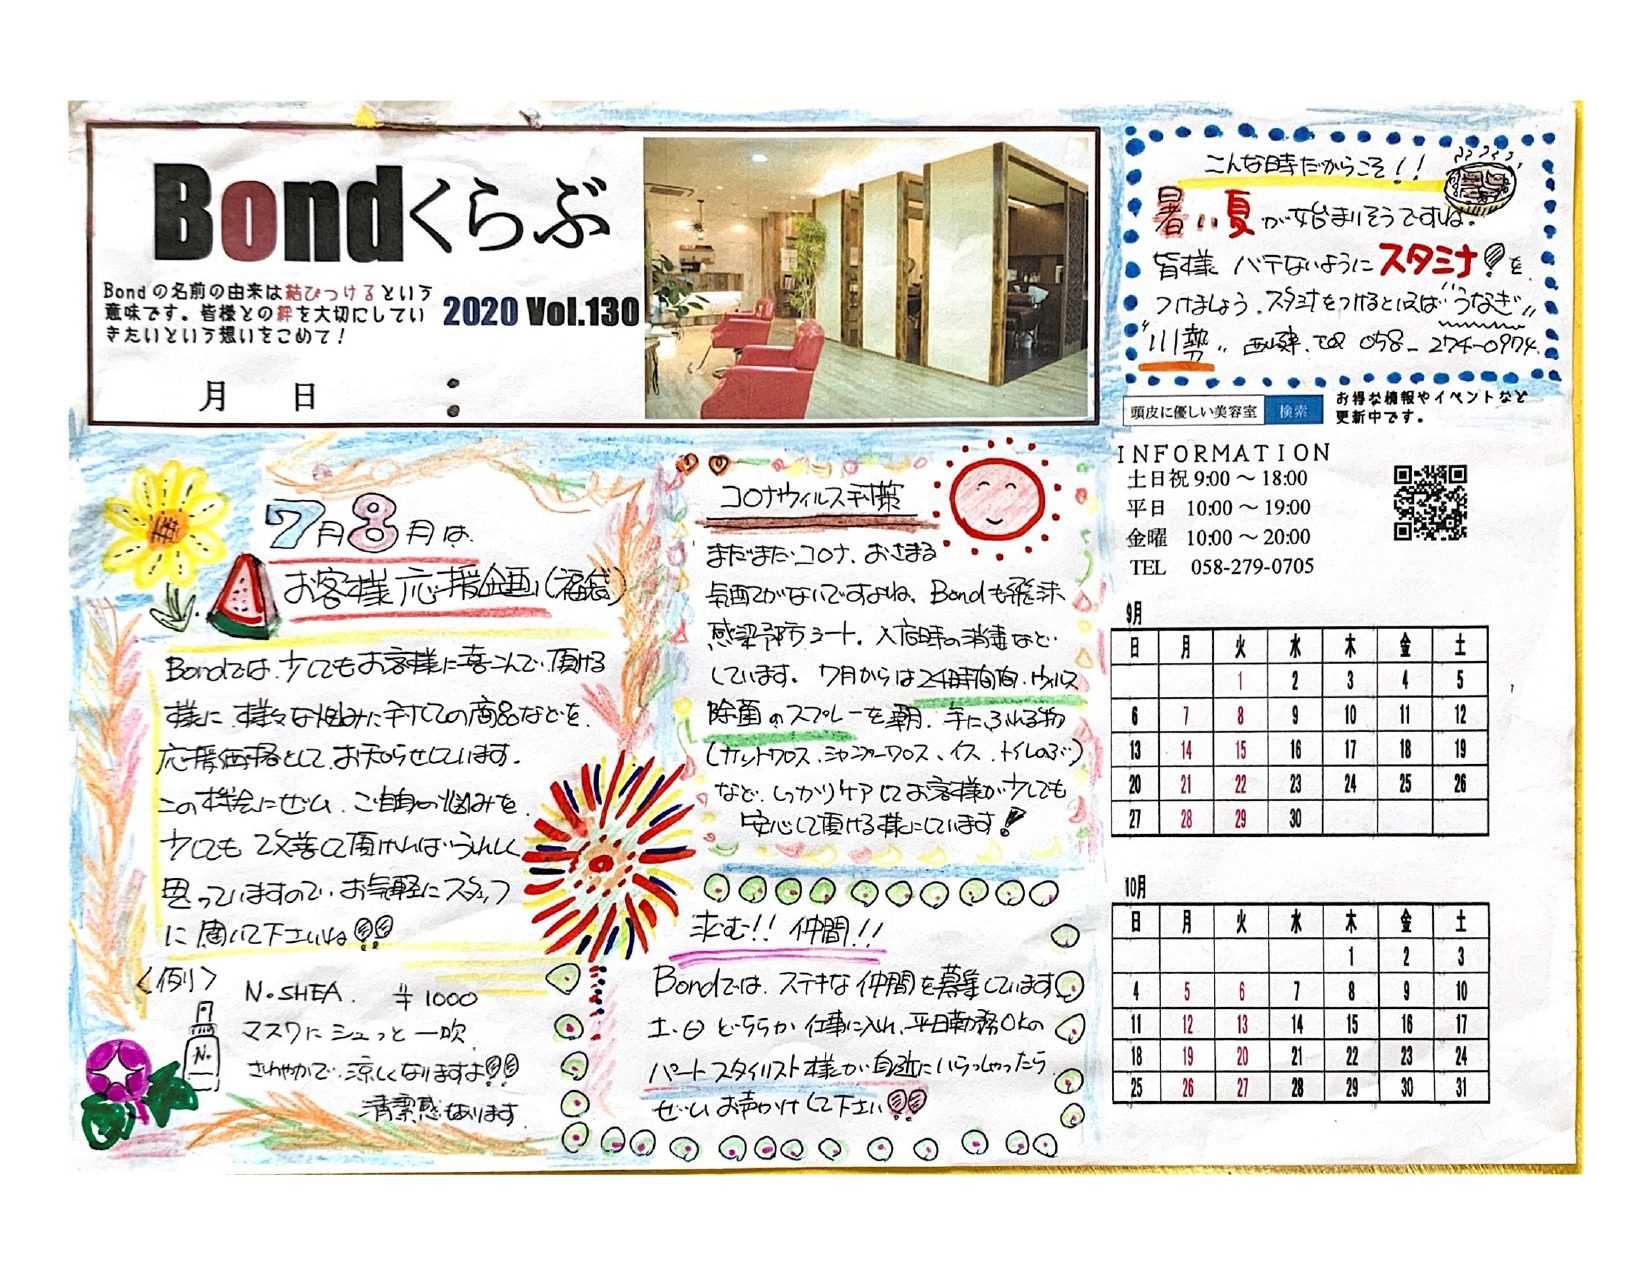 Bondくらぶ
Bondの名前の由来は結びつけるという
意味です。皆様との絆を大切にしてい
きたいという想いをこめて！
2020 Vol.130
月 日 :
こんな時だからこそ！！
暑い夏が始まりそうですね。
皆様 バテないようにスタミナ！を
つけましょう。スタミナをつけるといえば"うなぎ"
"川勢" 西鶉 tel 058-274-0974.
頭皮に優しい美容室 検索
お得な情報やイベントなど
更新中です。
INFORMATION
土日祝 9:00～18:00
平日 10:00～19:00
金曜 10:00～20:00
TEL 058-279-0705
7月8月は
お客様応援企画！(福袋)
Bondでは、少しでもお客様に喜こんで頂ける
様に、様々な悩みに対しての商品などを
応援価格として、お知らせしています。
この機会にぜひ、ご自身の悩みを
少しでも改善して頂ければうれしく
思っていますので、お気軽にスタッフ
に聞いて下さいね!!
〈例〉
N.SHEA. ¥1000
マスクにシュっと一吹
さわやかで、涼しくなりますよ!!
清潔感もあります
N.
コロナウィルス対策
まだまだコロナ、おさまる
気配がないですよね、Bondも飛沫
感染予防シート。入店時の消毒など
しています。7月からは24時間向、ウィルス
除菌のスプレーを朝、手にふれる物
(カットクロス、シャンプークロス、イス、トイレのノブ)
など、しっかりケアしてお客様が少しでも
安心して頂ける様にしています！
求む!! 仲間!!
Bondでは、ステキな仲間を募集しています
土・日どちらか仕事に入れ、平日勤務OKの
パートスタイリスト様が身近にいらっしゃったら
ぜひお声かけして下さい!!
9月
日 月 火 水 木 金 土
1 2 3 4 5
6 7 8 9 10 11 12
13 14 15 16 17 18 19
20 21 22 23 24 25 26
27 28 29 30
10月
日 月 火 水 木 金 土
1 2 3
4 5 6 7 8 9 10
11 12 13 14 15 16 17
18 19 20 21 22 23 24
25 26 27 28 29 30 31